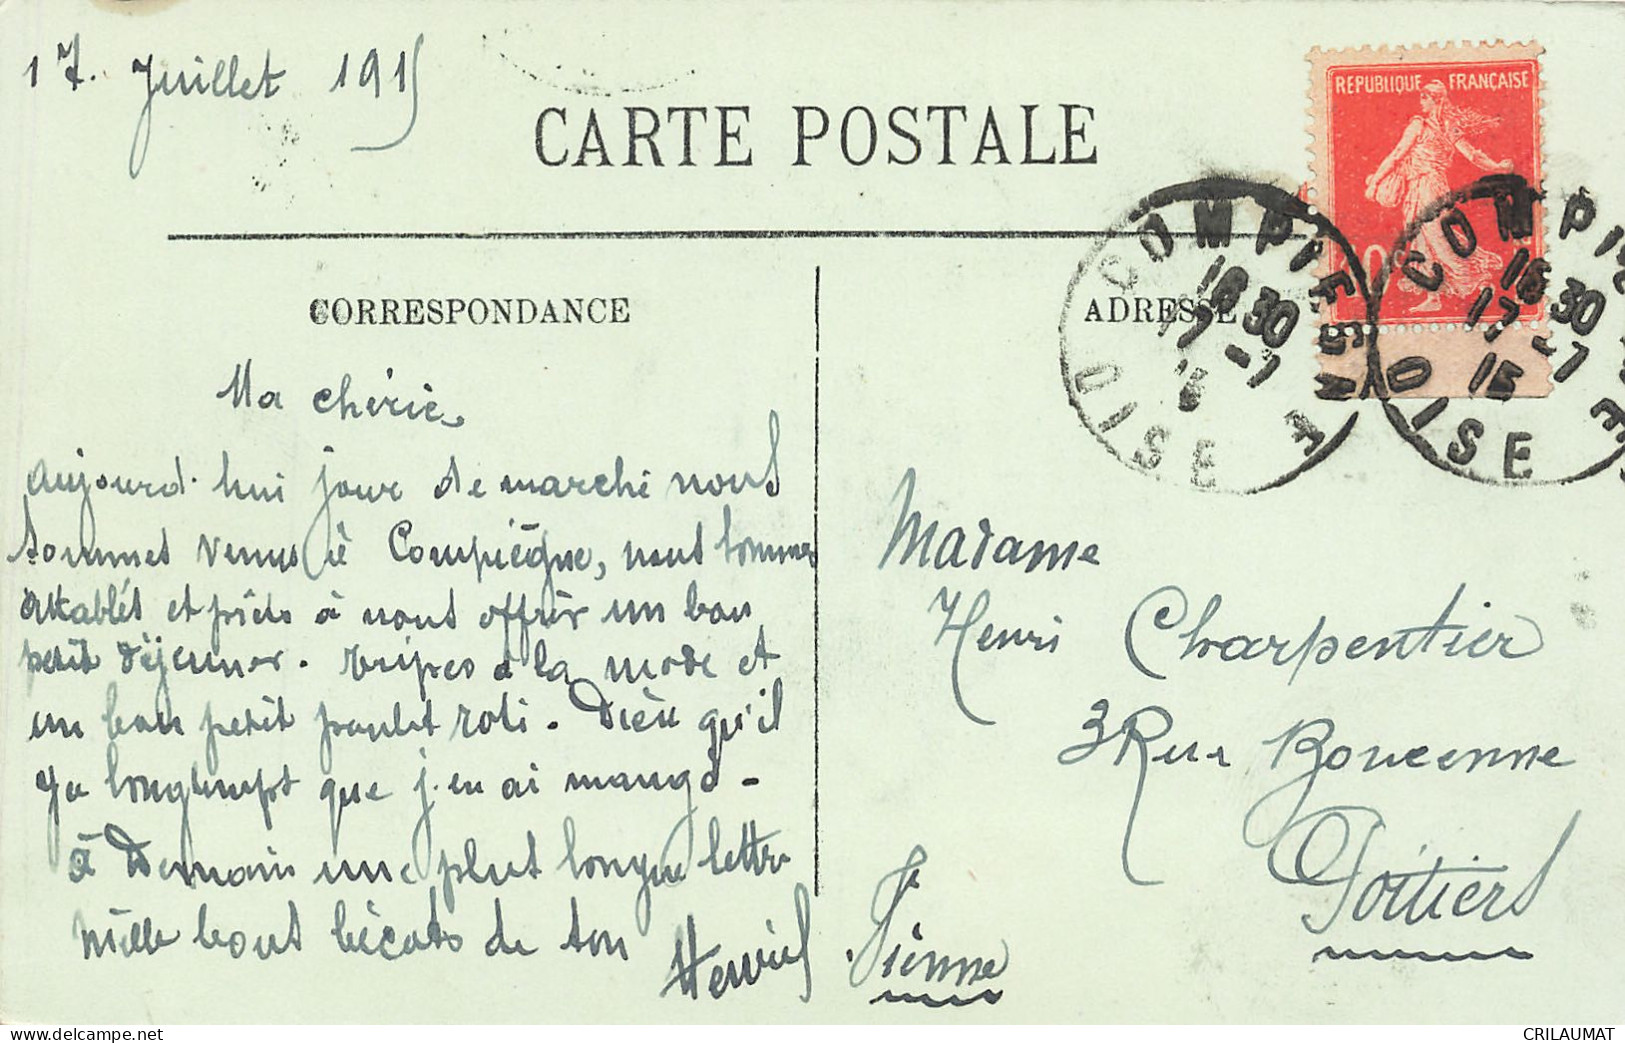 17. Juillet 1915
CARTE POSTALE
REPUBLIQUE FRANÇAISE
10
COMPIEGNE
18 30
17 -7
15
OISE
COMPIEGNE
18 30
17 -7
15
OISE
CORRESPONDANCE
ADRESSE
Ma chérie,
aujourd'hui jour de marché nous
sommes venus à Compiègne, nous sommes
attablés et prêts à nous offrir un bon
petit déjeuner. tripes à la mode et
un bon petit poulet roti. Dieu qu'il
ya longtemps que j'en ai mangé -
à Demain une plus longue lettre
Mille bons bécots de ton
Henri
Madame
Henri Charpentier
3 Rue Boncenne
Poitiers
Vienne
https://www.delcampe.net
CRILAUMAT